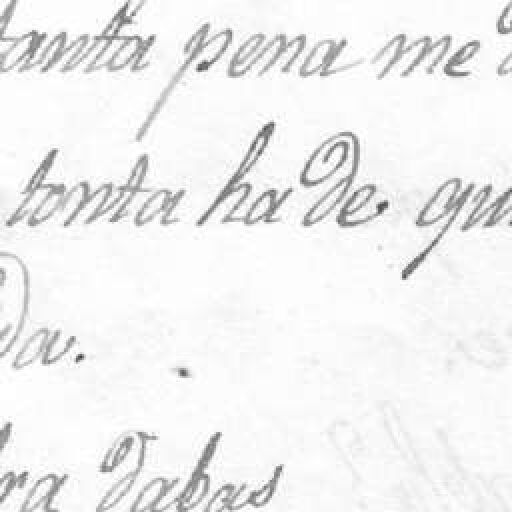 tanta pena me
tonta ha de
da.
dabas